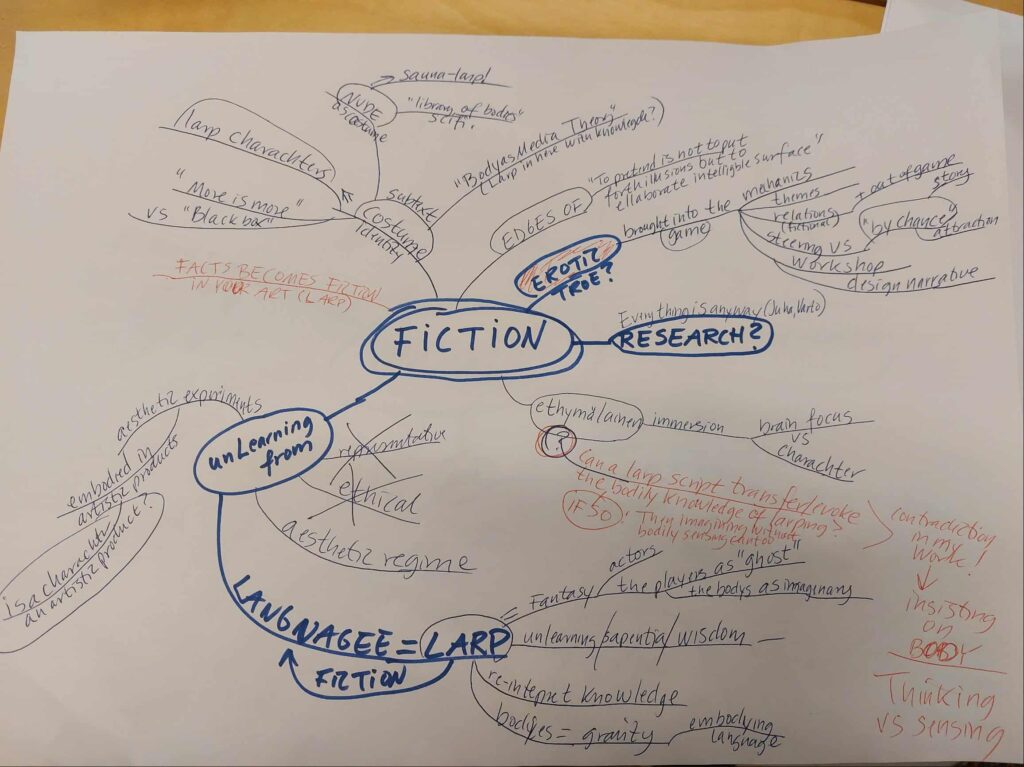 sauna-larp!
NUDE
as costume
"library of bodies"
scifi.
larp charachters
"More is more"
vs "Blackbox"
subtext
Costume
identity
"Body as Media Theory"
(Larp in here with knowledge?)
EDGES OF
"To pretend is not to put
forth illusions but to
ellaborate intelligible surface"
EROTIC
TRUE?
brought into the
game
mechanics
themes
relations
(fictional)
steering vs
workshop
design narrative
+ out of game
story
"by chance"
attraction
FACTS BECOMES FICTION
IN YOUR ART (LARP)
FICTION
Everything is anyway (Juha, Varto)
RESEARCH?
ethymalainen
immersion
brain focus
vs
charachter
?
Can a larp script transfer/evoke
the bodily knowledge of larping?
IF SO
: Then imagining without
bodily sensing can too
contradiction
in my
work!
insisting
on
BODY
Thinking
vs sensing
unLearning
from
representative
ethical
aesthetic regime
aesthetic experiments
embodied in
artistic products
is a charachter
an artistic product?
LANGNAGEE = LARP
FICTION
= Fantasy
actors
the players as "ghost"
the bodys as imaginary
unlearning/sapentia/wisdom —
re-interpret knowledge
bodyes = gravity
embodying
language